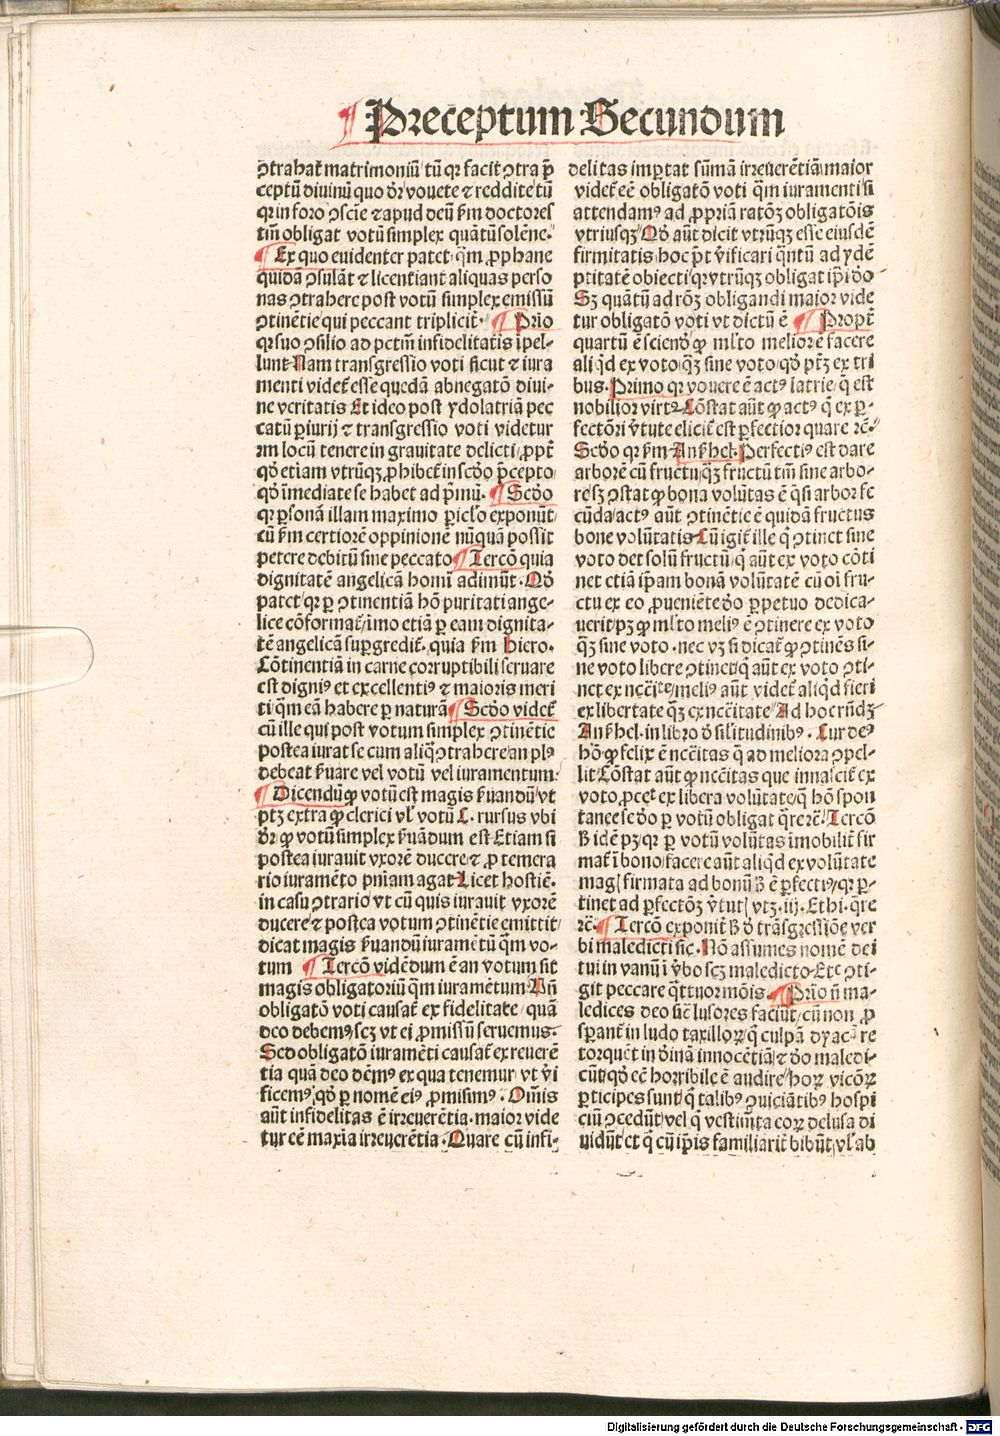 ¶ Preceptum Secundum
ꝯtrahat̉ matrimoniū/tū qꝛ facit ꝯtra p̄
ceptū diuinū quo dꝛ̄ vouete ⁊ reddite tū
qꝛ in foro ꝯscīe ⁊ apud deū ẜm doctores
tm̄ obligat votū simplex quātū solēne.
¶ Ex quo euidenter patet q̄m ꝓphane
quidā ꝯsulāt ⁊ licentiant aliquas perso
nas ꝯtrahere post votū simplex emissū
ꝯtinētie qui peccant triplicit̉. ¶ Prīo
qꝛ suo ꝯsilio ad pctm̄ infidelitatis īpel-
lunt. Nam transgressio voti sicut ⁊ iura
menti videt̉ esse quedā abnegatō diui-
ne veritatis Et ideo post ydolatriā pec
catū ꝑiurij ⁊ transgressio voti videtur
rm locū tenere in grauitate delicti/ꝓpt̉
qd̓ etiam vtrūqꝫ ꝓhibet̉ in scd̓o p̄cepto
qd̓ īmediate se habet ad p̄mū. ¶ Scd̓o
qꝛ ꝑsonā illam maximo ꝑicl̓o exponūt/
cū ẜm certiorē oppinionē nūquā possit
petere debitū sine peccato ¶ Tercō quia
dignitatē angelicā homī adimūt. Qd̓
patet/qꝛ ꝑ ꝯtinentiā hō puritati ange-
lice cōformat̉/īmo etiā ꝑ eam dignita-
tē angelicā suꝑgredit̉. quia ẜm Hiero.
Cōtinentiā in carne corruptibili seruare
est digniꝰ et excellentiꝰ ⁊ maioris meri
ti q̄m eā habere ꝑ naturā ¶ Scd̓o videt̉
cū ille qui post votum simplex ꝯtinētie
postea iurat se cum aliq̄ ꝯtrahere/an plꝰ
debeat ẜuare vel votū vel iuramentum.
¶ Dicendū ꝙ votū est magis ẜuandū/vt
ptꝫ extra ꝙ clerici vl̓ votū C. rursus vbi
dꝛ̄ ꝙ votū simplex ẜuādum est Etiam si
postea iurauit vxorē ducere/⁊ ꝓ temera
rio iuramēto pn̄iam agat Licet hostiē.
in casu ꝯtrario vt cū quis iurauit vxorē
ducere/⁊ postea votum ꝯtinētie emittit/
dicat magis ẜuandū iuramētū q̄m vo-
tum ¶ Tercō vidēdum ē an votum sit
magis obligatoriū q̄m iuramētum Vn̄
obligatō voti causat̉ ex fidelitate/quā
deo debemꝰ/scꝫ vt ei ꝓmissū seruemus.
Sed obligatō iuramēti causat̉ ex reuerē
tia quā deo dēmꝰ ex qua tenemur/vt v̓i
ficemꝰ/qd̓ ꝑ nomē eiꝰ ꝓmisimꝰ. Om̄is
aūt infidelitas ē irreuerētia. maior vide
tur eē maxīa irreuerētia. Quare cū infi-
delitas imꝑtat sūmā irreuerētiā/maior
videt̉ eē obligatō voti q̄m iuramenti si
attendamꝰ ad ꝓpriā ratōꝫ obligatōis
vtriusqꝫ/Qd̓ aūt dicit vtrūqꝫ esse eiusdē
firmitatis/hoc pt̄ v̓ificari q̄ntū ad ydē
ptitatē obiecti/qꝛ vtrūqꝫ obligat ip̄i d̓o
Sꝫ quātū ad rōꝫ obligandi maior vide
tur obligatō voti vt dictū ē ¶ Propt̉
quartū ē sciend̓ ꝙ ml̓to meliorē facere
aliq̓d ex voto/qꝫ sine voto/qd̓ ptꝫ ex tri
bus. Primo qꝛ vouere ē actꝰ latrie/q̄ est
nobilior virtꝰ. Cōstat aūt ꝙ actꝰ q̄ ex ꝑ-
fectōri v̓tute elicit̉ est ꝑfectior quare rc̄.
Scd̓o qꝛ ẜm Anẜhel. Perfectiꝰ est dare
arborē cū fructu/qꝫ fructū tm̄ sine arbo-
re/sꝫ ꝯstat ꝙ bona volūtas ē q̄si arbor fe
cūda/actꝰ aūt ꝯtinētie ē quidā fructus
bone volūtatis. Cū igit̉ ille q̄ ꝯtinet sine
voto det solū fructū/q̄ aūt ex voto cōti
net etiā ip̄am bonā volūtatē cū oi fru-
ctu ex eo ꝓueniēte d̓o ꝑpetuo dedica-
uerit/pꝫ ꝙ ml̓to meliꝰ ē ꝯtinere ex voto
qꝫ sine voto. nec vꝫ si dicat̉ ꝙ ꝯtinēs si-
ne voto libere ꝯtinet/q̄ aūt ex voto ꝯti-
net ex nc̄citate/meliꝰ aūt videt̉ aliq̓d fieri
ex libertate qꝫ ex nc̄citate Ad hoc rn̄dꝫ
Anẜhel. in libro d̓ silitudinibꝰ. Cur deꝰ
hō ꝙ felix ē nc̄citas q̄ ad meliora ꝯpel-
lit. Cōstat aūt ꝙ nc̄citas que innascit̉ ex
voto ꝓcet̉ ex libera volūtate/q̄ hō spon
tanee se d̓o ꝑ votū obligat q̄re rc̄. Tercō
ẞ idē pꝫ/qꝛ ꝑ votū volūtas īmobilit̉ fir
mat̉ ī bono/facere aūt aliq̓d ex volūtate
magꝭ firmata ad bonū ẞ ē ꝑfectiꝰ/qꝛ ꝑ-
tinet ad ꝑfectōꝫ v̓tutꝭ vtꝫ. iij. Ethi. q̄re
rc̄. ¶ Tercō exponit̉ ẞ d̓ trāsgressiōe ver
bi maledicti sic. Nō assumes nomē dei
tui in vanū ī v̓bo scꝫ maledicto. Etc ꝯti-
git peccare q̄ttuor mōis. ¶ Prīo n̄ ma-
ledices deo ūc̄ lusores faciūt/cū non ꝓ
sꝑant̉ in ludo taxilloꝝ/q̄ culpā dyac̄ re
torquēt in d̓inā innocētiā/⁊ d̓o maledi-
cūt/qd̓ eē horribile ē audire/hoꝝ vicōꝝ
ꝑticipes sunt/q̄ talibꝰ ꝯuiciātibꝰ hospi
ciū ꝯcedūt/vel q̄ vestim̄ta coꝝ delusa di
uidūt/et q̄ cū ip̄is familiarit̉ bibūt/vl̓ ab
Digitalisierung gefördert durch die Deutsche Forschungsgemeinschaft - DFG